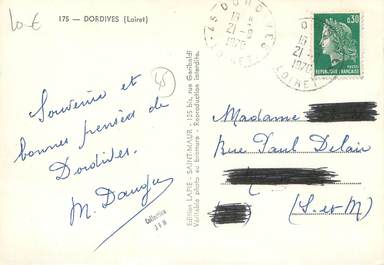 10 €
175 — DORDIVES (Loiret)
45
Souvenir et
bonnes pensées de
Dordives.
M.
Collection
Edition LAPIE - SAINT-MAUR - 125 bis, rue Garibaldi
Véritable photo au bromure - Reproduction interdite.
45 DORDIVES
21
1970
LOIRET
0,30
REPUBLIQUE FRANÇAISE
POSTES
21
1970
LOIRET
Madame
Rue Paul
(S.-et-M)